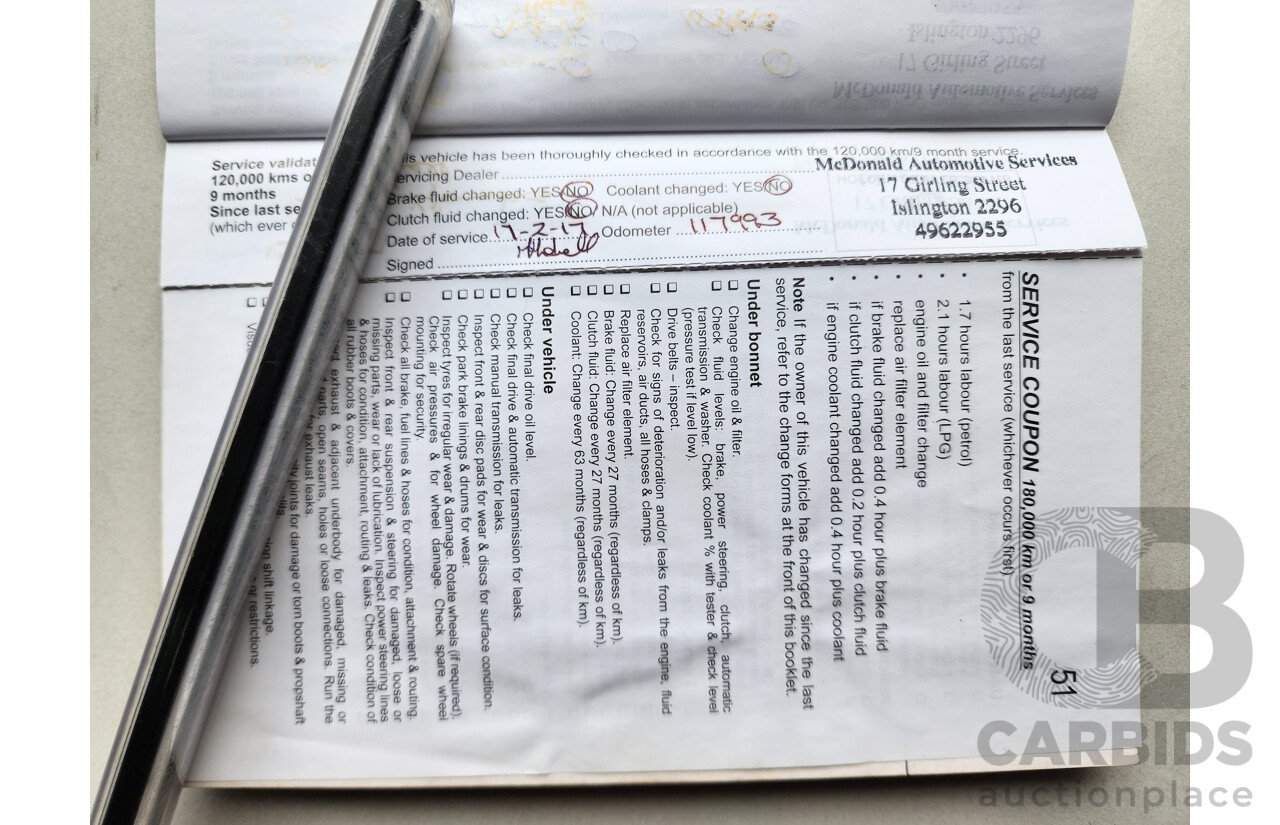 Islington 2296
17 Girling Street
McDonald Automotive Services
Service validat
120,000 kms o
9 months
Since last se
(which ever
is vehicle has been thoroughly checked in accordance with the 120,000 km/9 month service.
ervicing Dealer
Brake fluid changed: YES/NO Coolant changed: YES/NO
Clutch fluid changed: YES/NO/ N/A (not applicable)
Date of service 17-2-17 Odometer 117993
Signed
McDonald Automotive Services
17 Girling Street
Islington 2296
49622955
51
SERVICE COUPON 180,000 km or 9 months
from the last service (whichever occurs first)
• 1.7 hours labour (petrol)
• 2.1 hours labour (LPG)
• engine oil and filter change
• replace air filter element
• if brake fluid changed add 0.4 hour plus brake fluid
• if clutch fluid changed add 0.2 hour plus clutch fluid
• if engine coolant changed add 0.4 hour plus coolant
Note If the owner of this vehicle has changed since the last
service, refer to the change forms at the front of this booklet.
Under bonnet
☐ Change engine oil & filter.
☐ Check fluid levels: brake, power steering, clutch, automatic
transmission & washer. Check coolant % with tester & check level
(pressure test if level low).
☐ Drive belts – inspect.
☐ Check for signs of deterioration and/or leaks from the engine, fluid
reservoirs, air ducts, all hoses & clamps.
☐ Replace air filter element.
☐ Brake fluid: Change every 27 months (regardless of km).
☐ Clutch fluid: Change every 27 months (regardless of km).
☐ Coolant: Change every 63 months (regardless of km).
Under vehicle
☐ Check final drive oil level.
☐ Check final drive & automatic transmission for leaks.
☐ Check manual transmission for leaks.
☐ Inspect front & rear disc pads for wear & discs for surface condition.
☐ Check park brake linings & drums for wear.
☐ Inspect tyres for irregular wear & damage. Rotate wheels (if required).
Check air pressures & for wheel damage. Check spare wheel
mounting for security.
☐ Check all brake, fuel lines & hoses for condition, attachment & routing.
☐ Inspect front & rear suspension & steering for damaged, loose or
missing parts, wear or lack of lubrication. Inspect power steering lines
& hoses for condition, attachment, routing & leaks. Check condition of
all rubber boots & covers.
exhaust & adjacent underbody for damaged, missing or
parts, open seams, holes or loose connections. Run the
for exhaust leaks.
joints for damage or torn boots & propshaft
shift linkage.
or restrictions.
CARBIDS
auctionplace